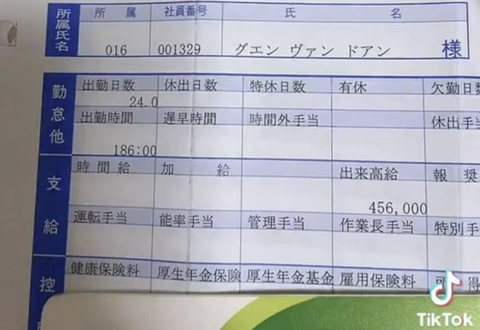 所属氏名
所属 社員番号 氏名
016 001329 グエン ヴァン ドアン 様
勤怠他
出勤日数 休出日数 特休日数 有休 欠勤日
24.0
出勤時間 遅早時間 時間外手当 休出手
186:00
支給
時間給 加給 出来高給 報奨
456,000
運転手当 能率手当 管理手当 作業長手当 特別手
控
健康保険料 厚生年金保険 厚生年金基金 雇用保険料 得
TikTok